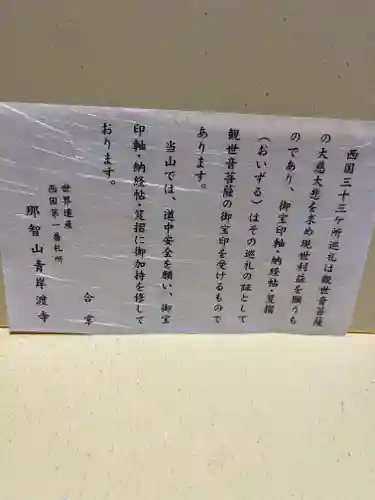 西国三十三ヶ所巡礼は観世音菩薩
の大慈大悲を求め現世利益を願うも
のであり、御宝印軸・納経帖・笈摺
（おいずる）はその巡礼の証として
観世音菩薩の御宝印を受けるもので
あります。
当山では、道中安全を願い、御宝
印軸・納経帖・笈摺に御加持を修して
おります。
合掌
世界遺産
西国第一番札所
那智山青岸渡寺